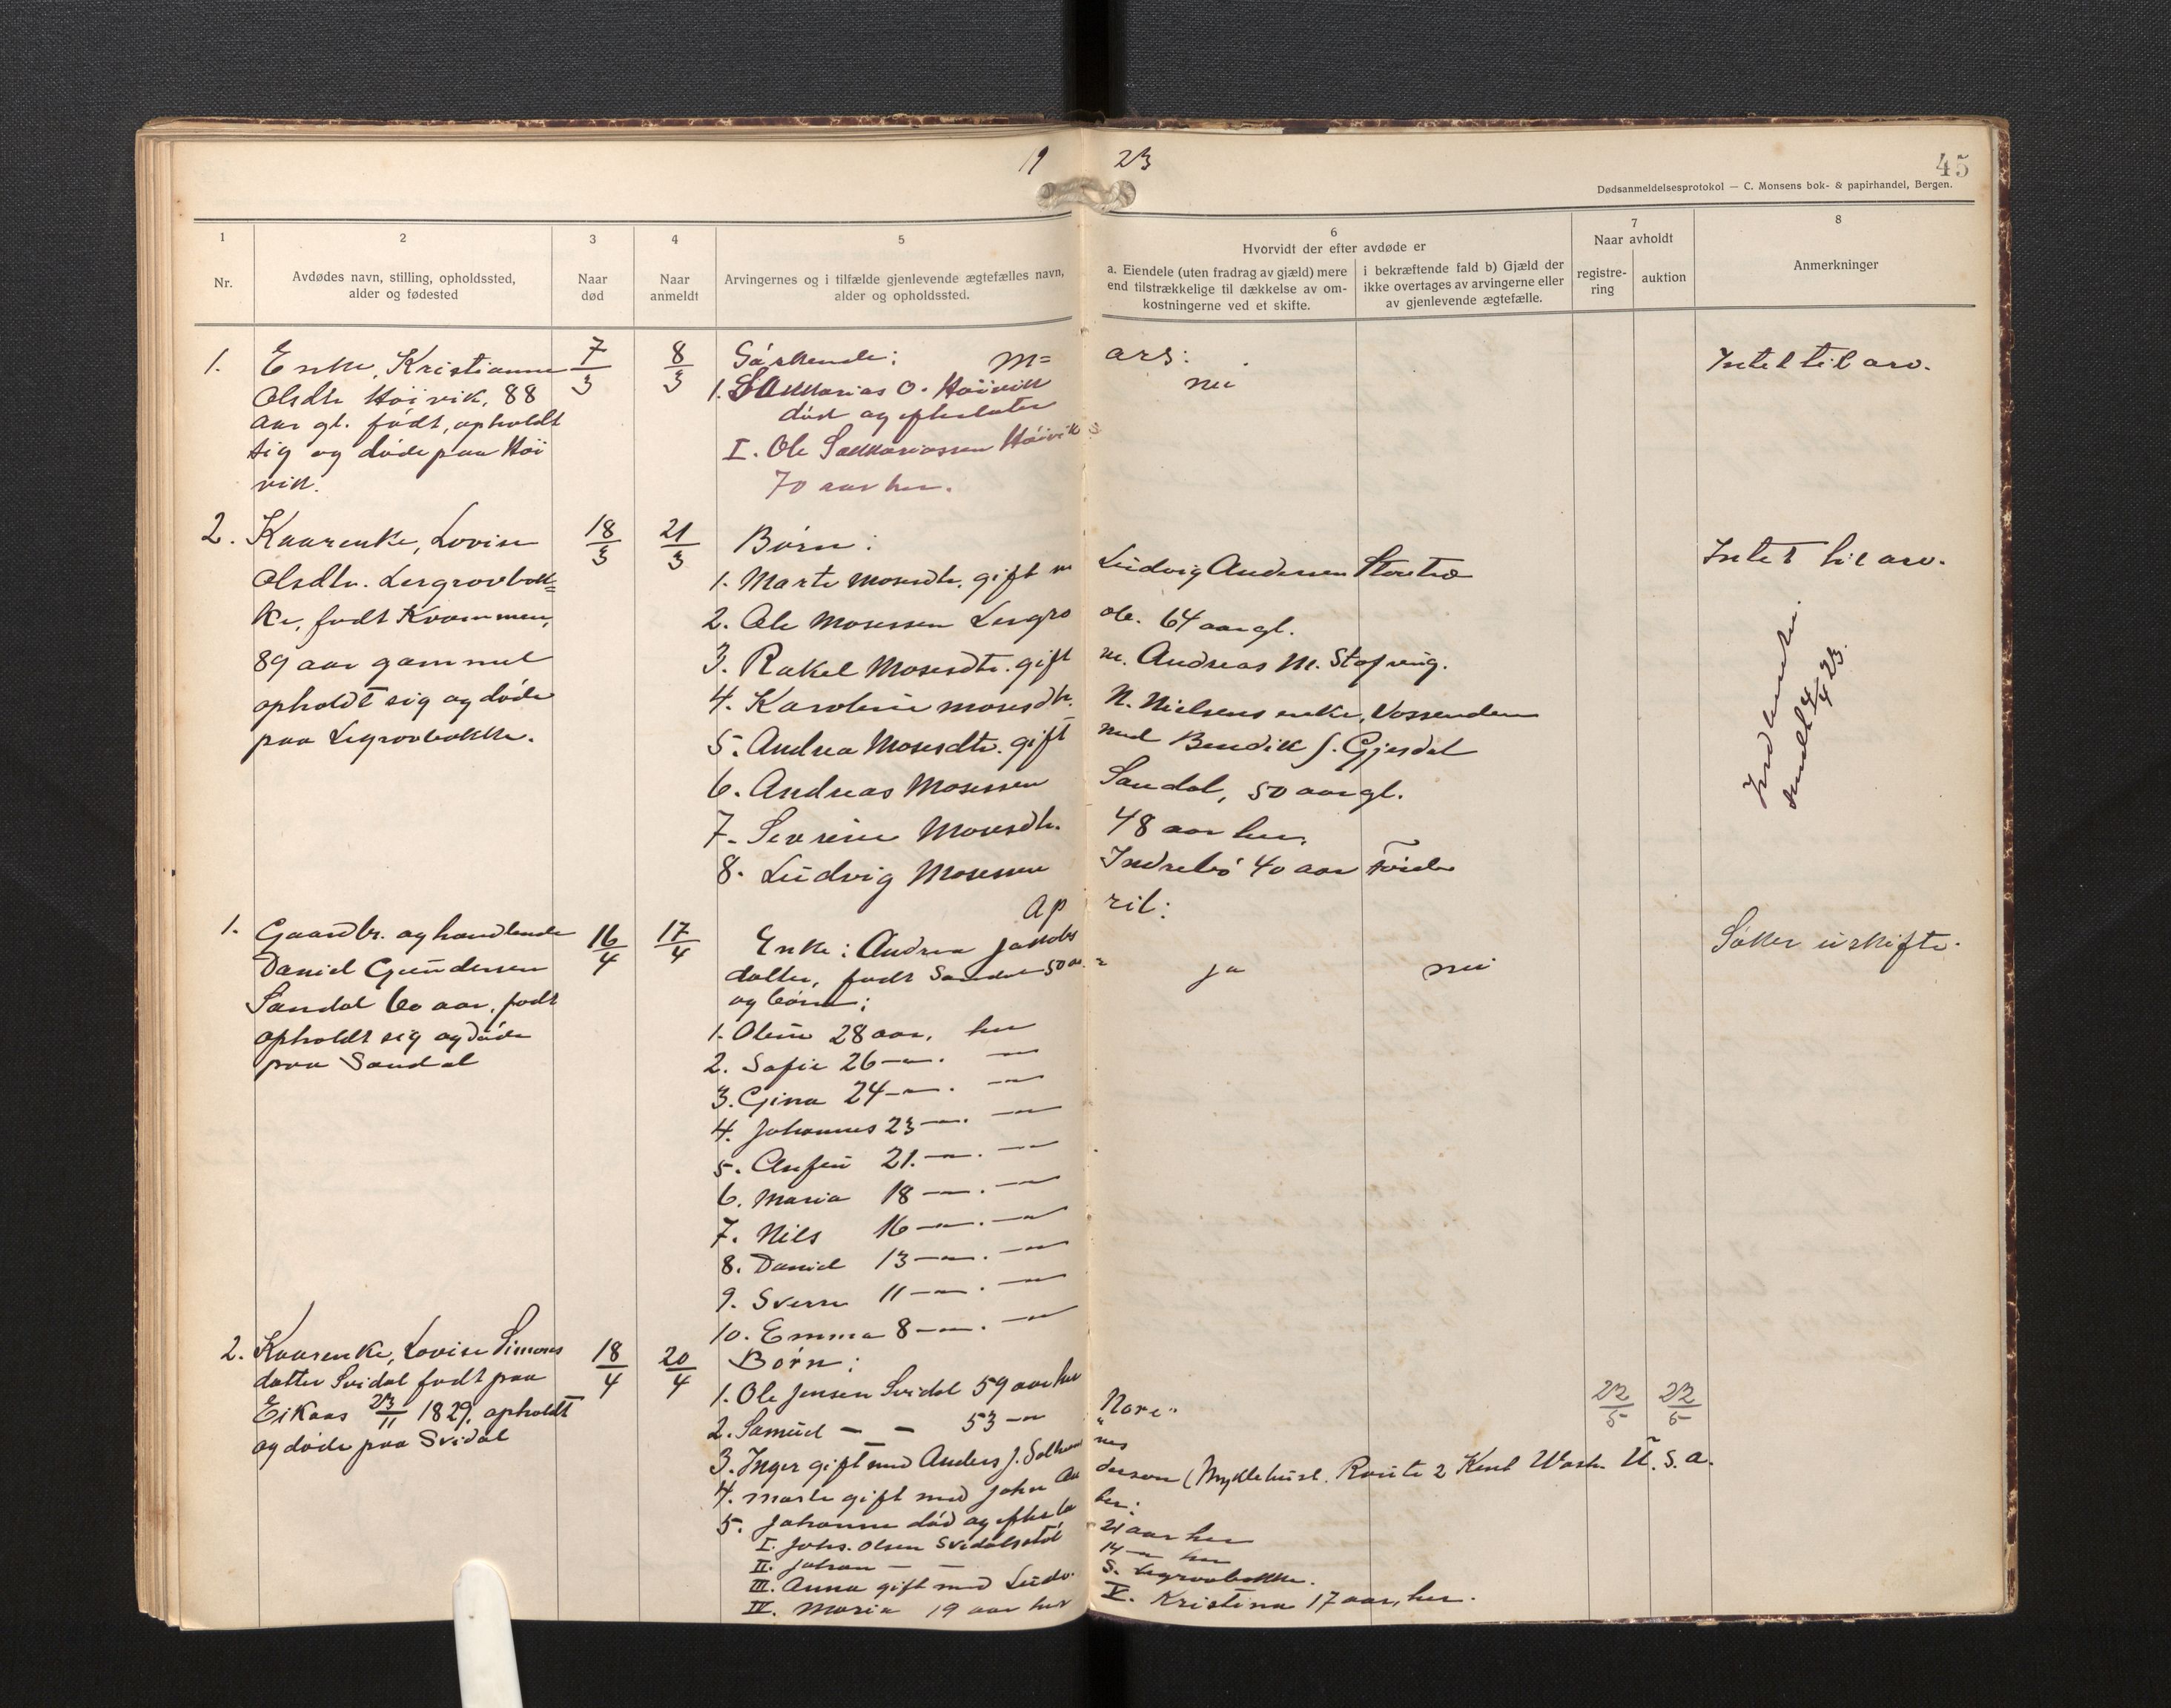 19 23
45
Dødsanmeldelsesprotokol — C. Monsens bok- & papirhandel, Bergen.
1
Nr.
2
Avdødes navn, stilling, opholdssted,
alder og fødested
3
Naar
død
4
Naar
anmeldt
5
Arvingernes og i tilfælde gjenlevende ægtefælles navn,
alder og opholdssted.
6
Hvorvidt der efter avdøde er
a. Eiendele (uten fradrag av gjæld) mere
end tilstrækkelige til dækkelse av om-
kostningerne ved et skifte.
i bekræftende fald b) Gjæld der
ikke overtages av arvingerne eller
av gjenlevende ægtefælle.
7
Naar avholdt
registre-
ring
auktion
8
Anmerkninger
M= ars:
1. Enke, Kristianne
Olsdtr Høivik, 88
aar gl. født, opholdt
sig og døde paa Høi
vik.
7/3
8/3
Søskende:
1. Sakkarias O. Høivik
død og efterlater
I. Ole Sakkariassen Høivik
70 aar her.
nei
Intet til arv.
2. Kaarenke, Lovise
Olsdtr. Lergrovbak=
ke, født Kvammen,
89 aar gammel
opholdt sig og døde
paa Legrovbakke.
18/3
21/3
Børn:
1. Marte Mosesdtr. gift m Ludvig Andersen Storetræ
2. Ole Mosessen Lergro ole. 64 aar gl.
3. Rakel Mosesdtr. gift m. Andreas M. Stafseng.
4. Karoline Mosesdtr. N. Nielsens enke, Vossenden
5. Andrea Mosesdtr. gift med Bendik J. Gjesdal
6. Andreas Mosessen Sandal, 50 aar gl.
7. Severine Mosesdtr. 48 aar her.
8. Ludvig Mosessen Indrebø 40 aar Førde
Intet til arv.
4/4 23.
Ap ril:
1. Gaardbr. og handlende
Daniel Gundersen
Sandal 60 aar, født
opholdt sig og døde
paa Sandal
16/4
17/4
Enke: Andrea Jakobs
datter, født Sandal 50 a.
og børn:
1. Oline 28 aar, her
2. Sofie 26 —"—. —"—
3. Gina 24 —"—. —"—
4. Johannes 23 —"—. —"—
5. Anfin 21. —"—. —"—
6. Maria 18 —"—. —"—
7. Nils 16 —"—. —"—
8. Daniel 13 —"—. —"—
9. Sverre 11 —"—. —"—
10. Emma 8 —"—. —"—
ja
nei
Søker uskifte.
2. Kaarenke, Lovise Simons
datter Svidal født paa
Eikaas 23/11 1829, opholdt
og døde paa Svidal
18/4
20/4
Børn:
1. Ole Jensen Svidal 59 aar her
2. Samuel — — 53 —"— "Nore"
3. Inger gift med Anders J. Solheim nes
4. Marte gift med John An derson (Myklebust. Route 2 Kent Wash. U.S.A.
5. Johanne død og efterla ter:
I. Johs. Olsen Svidalsstøl 21 aar her
II. Johan — — 14 —"— her
III. Anna gift med Ludv. S. Legrovbakke.
IV. Maria 19 aar her
V. Kristina 17 aar, her.
22/5
22/5